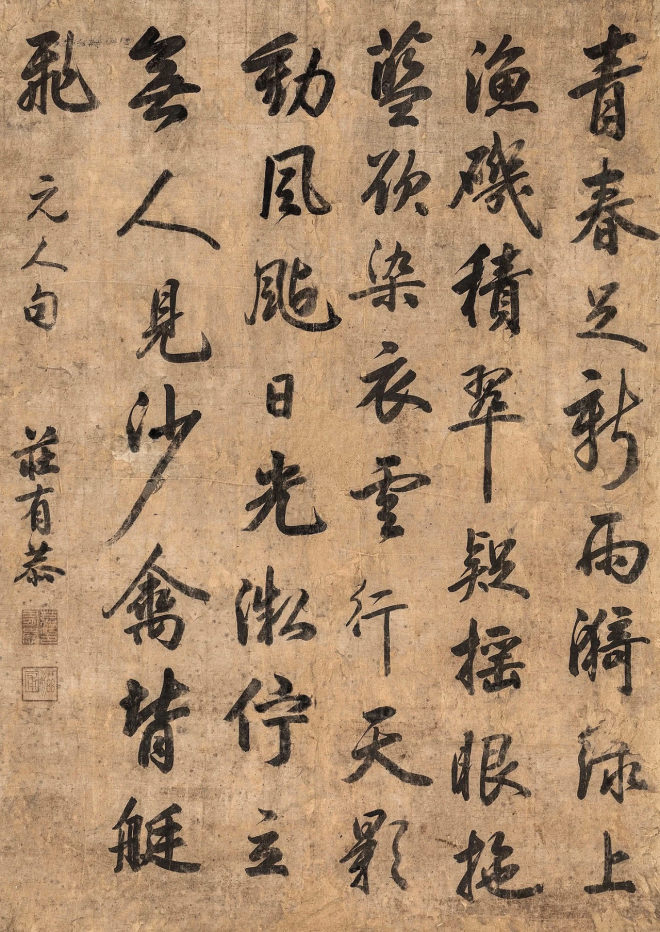 青春足新雨漪渌上
漁磯積翠疑摇眼拖
藍欲染衣雲行天影
動風颭日光溦佇立
無人見沙禽背艇
飛
元人句
莊有恭